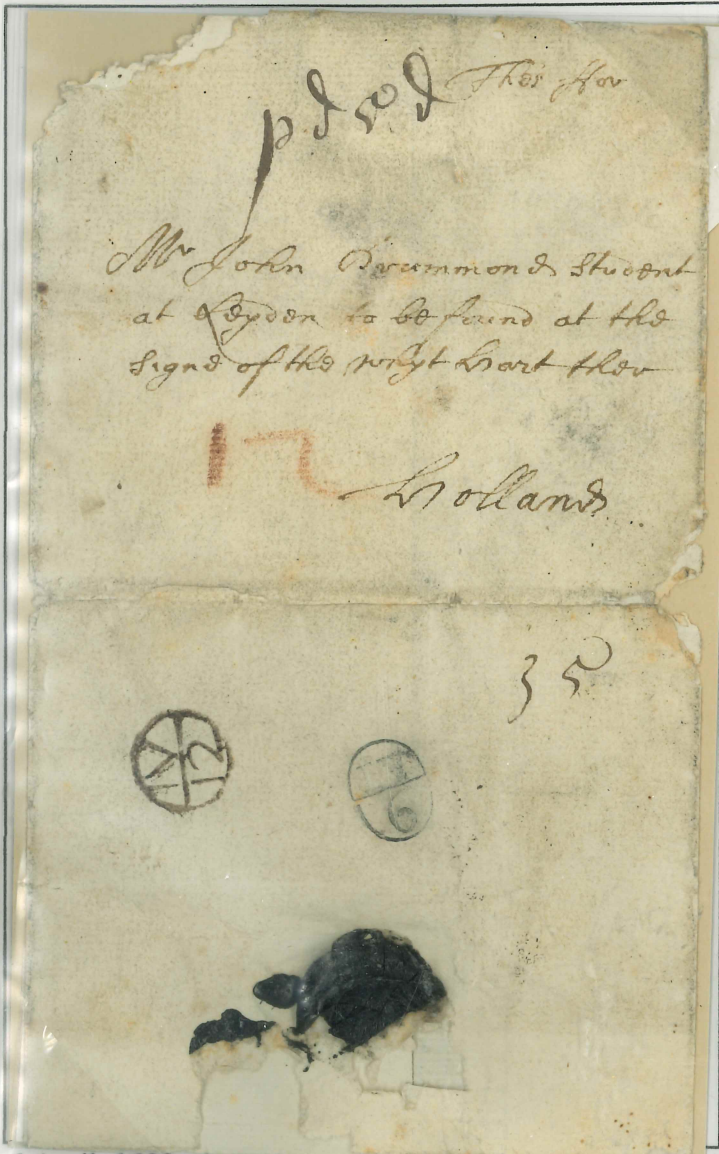 pd 5 d Thes ffor
Mr John Drummond Student
at Leyden to be found at the
Signe of the Whyt hart ther
12
Holland
35
IV
12